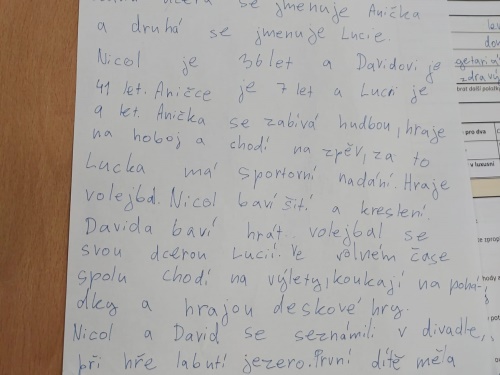 dcera se jmenuje Anička
a druhá se jmenuje Lucie.
Nicol je 36 let a Davidovi je
41 let. Aničce je 7 let a Lucii je
9 let. Anička se zabívá hudbou, hraje
na hoboj a chodí na zpěv, za to
Lucka má sportovní nadání. Hraje
volejbal. Nicol baví šití a kreslení.
Davida baví hrát volejbal se
svou dcerou Lucií. Ve volném čase
spolu chodí na výlety, koukají na pohá-
dky a hrajou deskové hry.
Nicol a David se seznámili v divadle,
při hře labutí jezero. První dítě měla
zdravý
brat další polož
pro dva
v luxusní